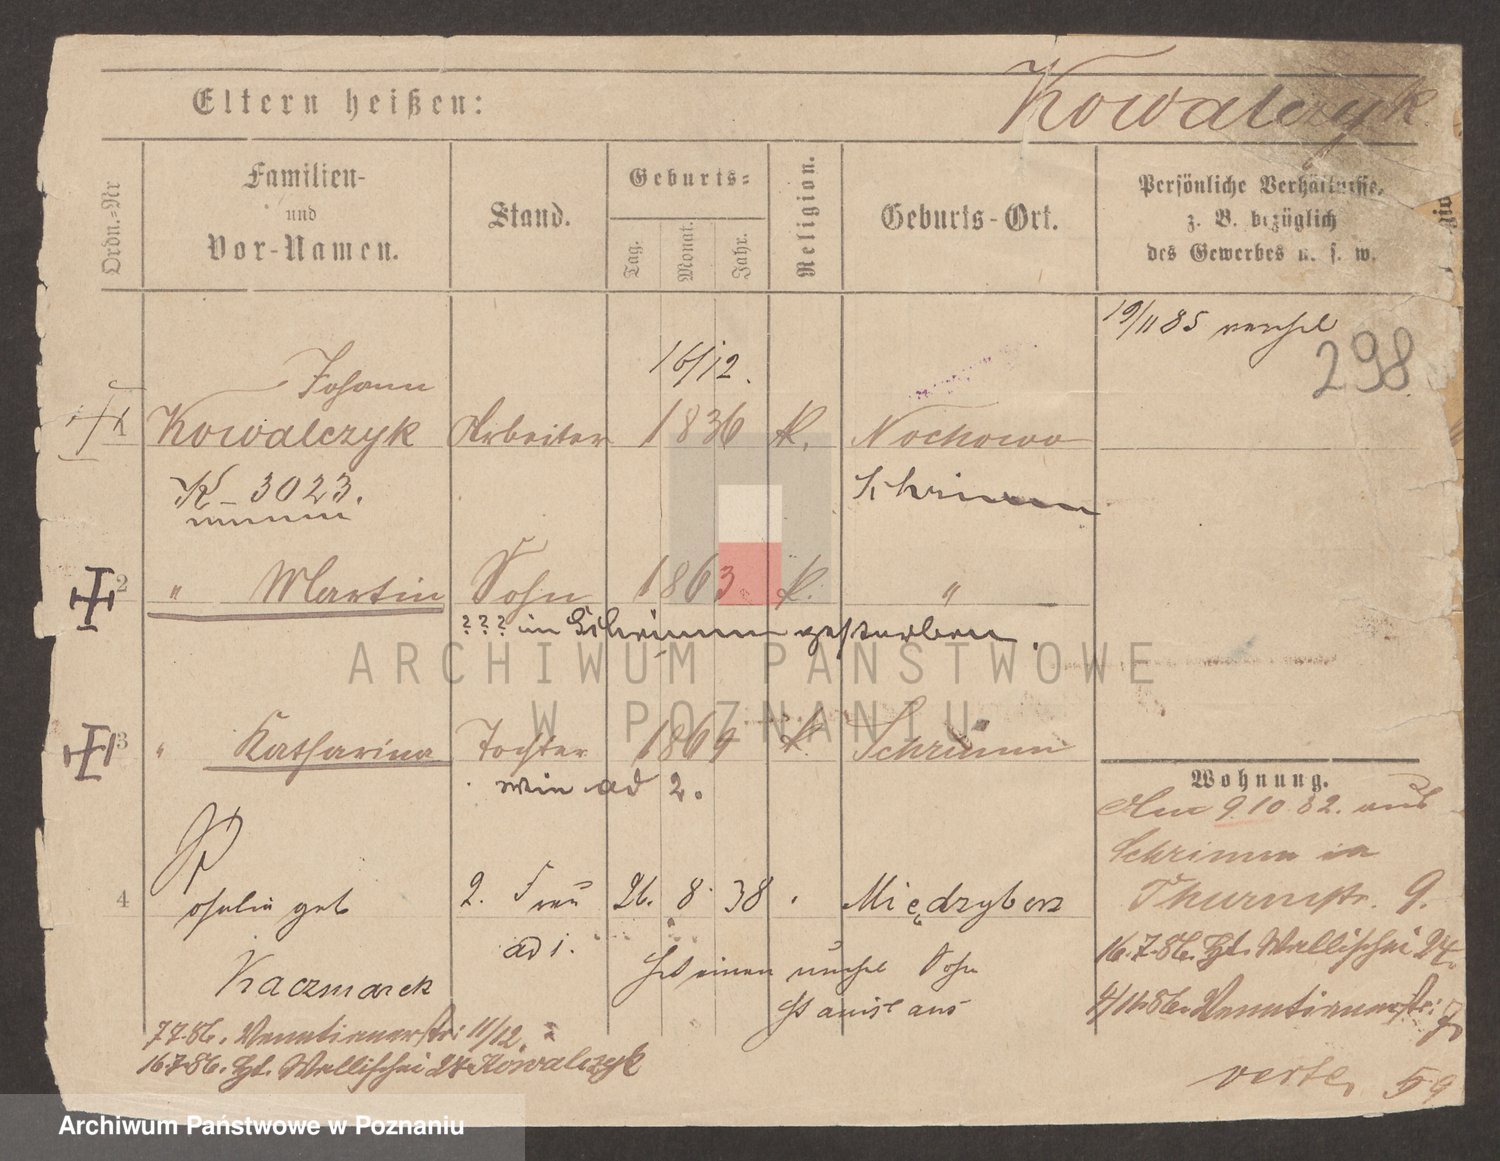 Eltern heißen:
Kowalczyk
Ordn.-Nr
Familien-
und
Vor-Namen.
Stand.
Geburts-
Tag.
Monat.
Jahr.
Religion.
Geburts-Ort.
Persönliche Verhältnisse,
z. B. bezüglich
des Gewerbes u. s. w.
19/11 85
298
Johann
16/12.
1 Kowalczyk Arbeiter 1836 k. Nochowo
K-3023.
Schrimm
2 " Martin Sohn 1863. k. "
??? in Schrimm gestorben.
ARCHIWUM PAŃSTWOWE
W POZNANIU
3 " Katharina Tochter 1864 k. Schrimm
wie ad 2.
Wohnung.
Am 9.10.82. aus
Schrimm in
Thurmstr. 9.
4 Rosalie geb 2. Frau 26. 8. 38 Międzyborz
ad 1.
Kaczmarek
hat einen unehel Sohn
Stanislaus
16.7.86. Wallischei 24.
4/11.86. Venetianerstr: 7
7.7.86. Venetianerstr: 11/12
16.7.86. Wallischei 24 Kowalczyk
verte 59
Archiwum Państwowe w Poznaniu